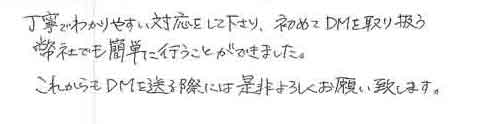 丁寧でわかりやすい対応をして下さり、初めてDMを取り扱う
弊社でも簡単に行うことができました。
これからもDMを送る際には是非よろしくお願い致します。